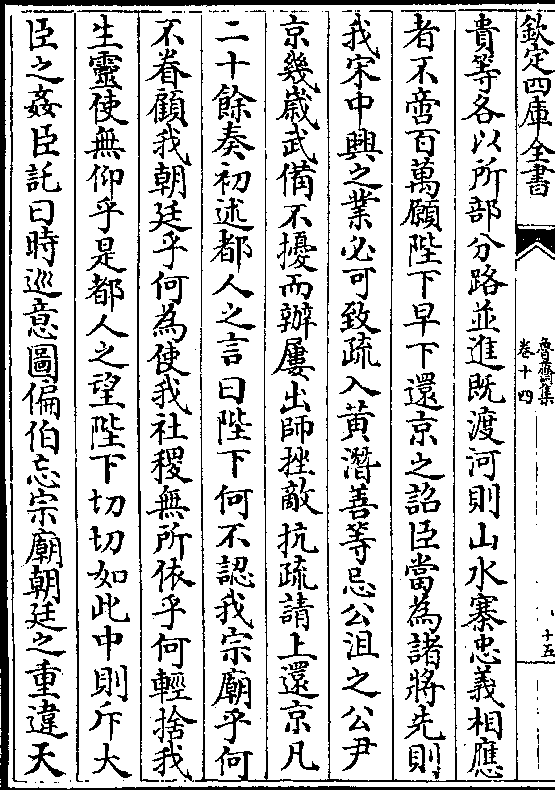 欽定四庫全書
魯齋集
卷十四
十五
貴等各以所部分路並進既渡河則山水寨忠義相應
者不啻百萬願陛下早下還京之詔臣當為諸將先則
我宋中興之業必可致疏入黃潛善等忌公沮之公尹
京幾歲武備不擾而辦屢出師挫敵抗疏請上還京凡
二十餘奏初述都人之言曰陛下何不認我宗廟乎何
不眷顧我朝廷乎何為使我社稷無所依乎何輕捨我
生靈使無仰乎是都人之望陛下切切如此中則斥大
臣之姦臣託曰時巡意圖偏伯忘宗廟朝廷之重違天